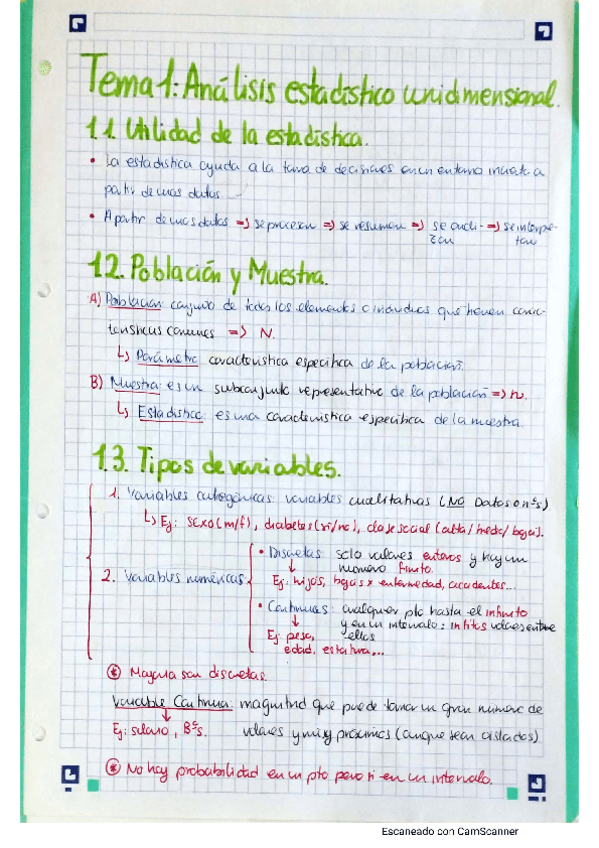 Tema 1: Análisis estadístico unidimensional.
1.1. Utilidad de la estadística.
• La estadística ayuda a la toma de decisiones en un entorno incierto a
partir de unos datos.
• A partir de unos datos => se procesan => se resumen => se anali- => se interpre-
zan tan
1.2. Población y Muestra.
A) Población: conjunto de todos los elementos o individuos que tienen carac-
terísticas comunes => N.
↳ Parámetro: característica específica de la población.
B) Muestra: es un subconjunto representativo de la población => n.
↳ Estadístico: es una característica específica de la muestra.
1.3. Tipos de variables.
1. Variables categóricas: variables cualitativas (NO Datos o nºs)
↳ Ej: sexo (m/f), diabetes (si/no), clase social (alta/media/baja).
• Discretas: solo valores enteros y hay un
número finito.
2. Variables numéricas
Ej: hijos, bajas x enfermedad, accidentes...
• Continuas: cualquier pto hasta el infinito
y en un intervalo: infitos valores entre
Ej: peso, ellos
edad, estatura,...
* Mayoría son discretas.
Variable Continua: magnitud que puede tomar un gran número de
Ej: salario, Bºs. valores y muy próximos (aunque sean aislados)
* No hay probabilidad en un pto pero si en un intervalo.
Escaneado con CamScanner